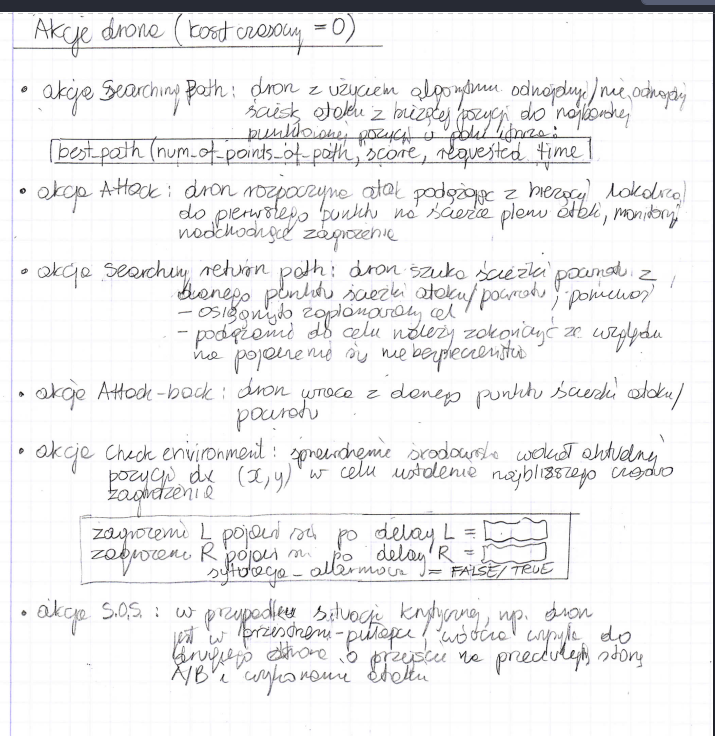 Akcje drona (koszt czasowy = 0)
• akcja Searching Path: dron z użyciem algorytmu odnajduje/nie odnajduje
ścieżkę ataku z bieżącej pozycji do najbardziej
punktowanej pozycji w polu
best_path (num_of_points_of_path, score, requested time
• akcja Attack: dron rozpoczyna atak podążając z bieżącej lokalizacji
do pierwszego punktu na ścieżce planu ataku, monitoruje
nadchodzące zagrożenie
• akcja Searching return path: dron szuka ścieżki powrotu z
danego punktu ścieżki ataku/powrotu, ponieważ
- osiągnięto zaplanowany cel
- podążanie do celu należy zakończyć ze względu
na pojawienie się niebezpieczeństwa
• akcja Attack-back: dron wraca z danego punktu ścieżki ataku/
powrotu
• akcja Check environment: sprawdzenie środowiska wokół aktualnej
pozycji (x,y) w celu ustalenia najbliższego czasowo
zagrożenia
zagrożenie L pojawi się po delay L =
zagrożenie R pojawi się po delay R =
sytuacja_alarmowa = FALSE/TRUE
• akcja S.O.S.: w przypadku sytuacji krytycznej, np. dron
jest w przestrzeni-pułapce, do
drugiego drona o przejściu na przeciwległą stronę
A/B i wykonanie ataku